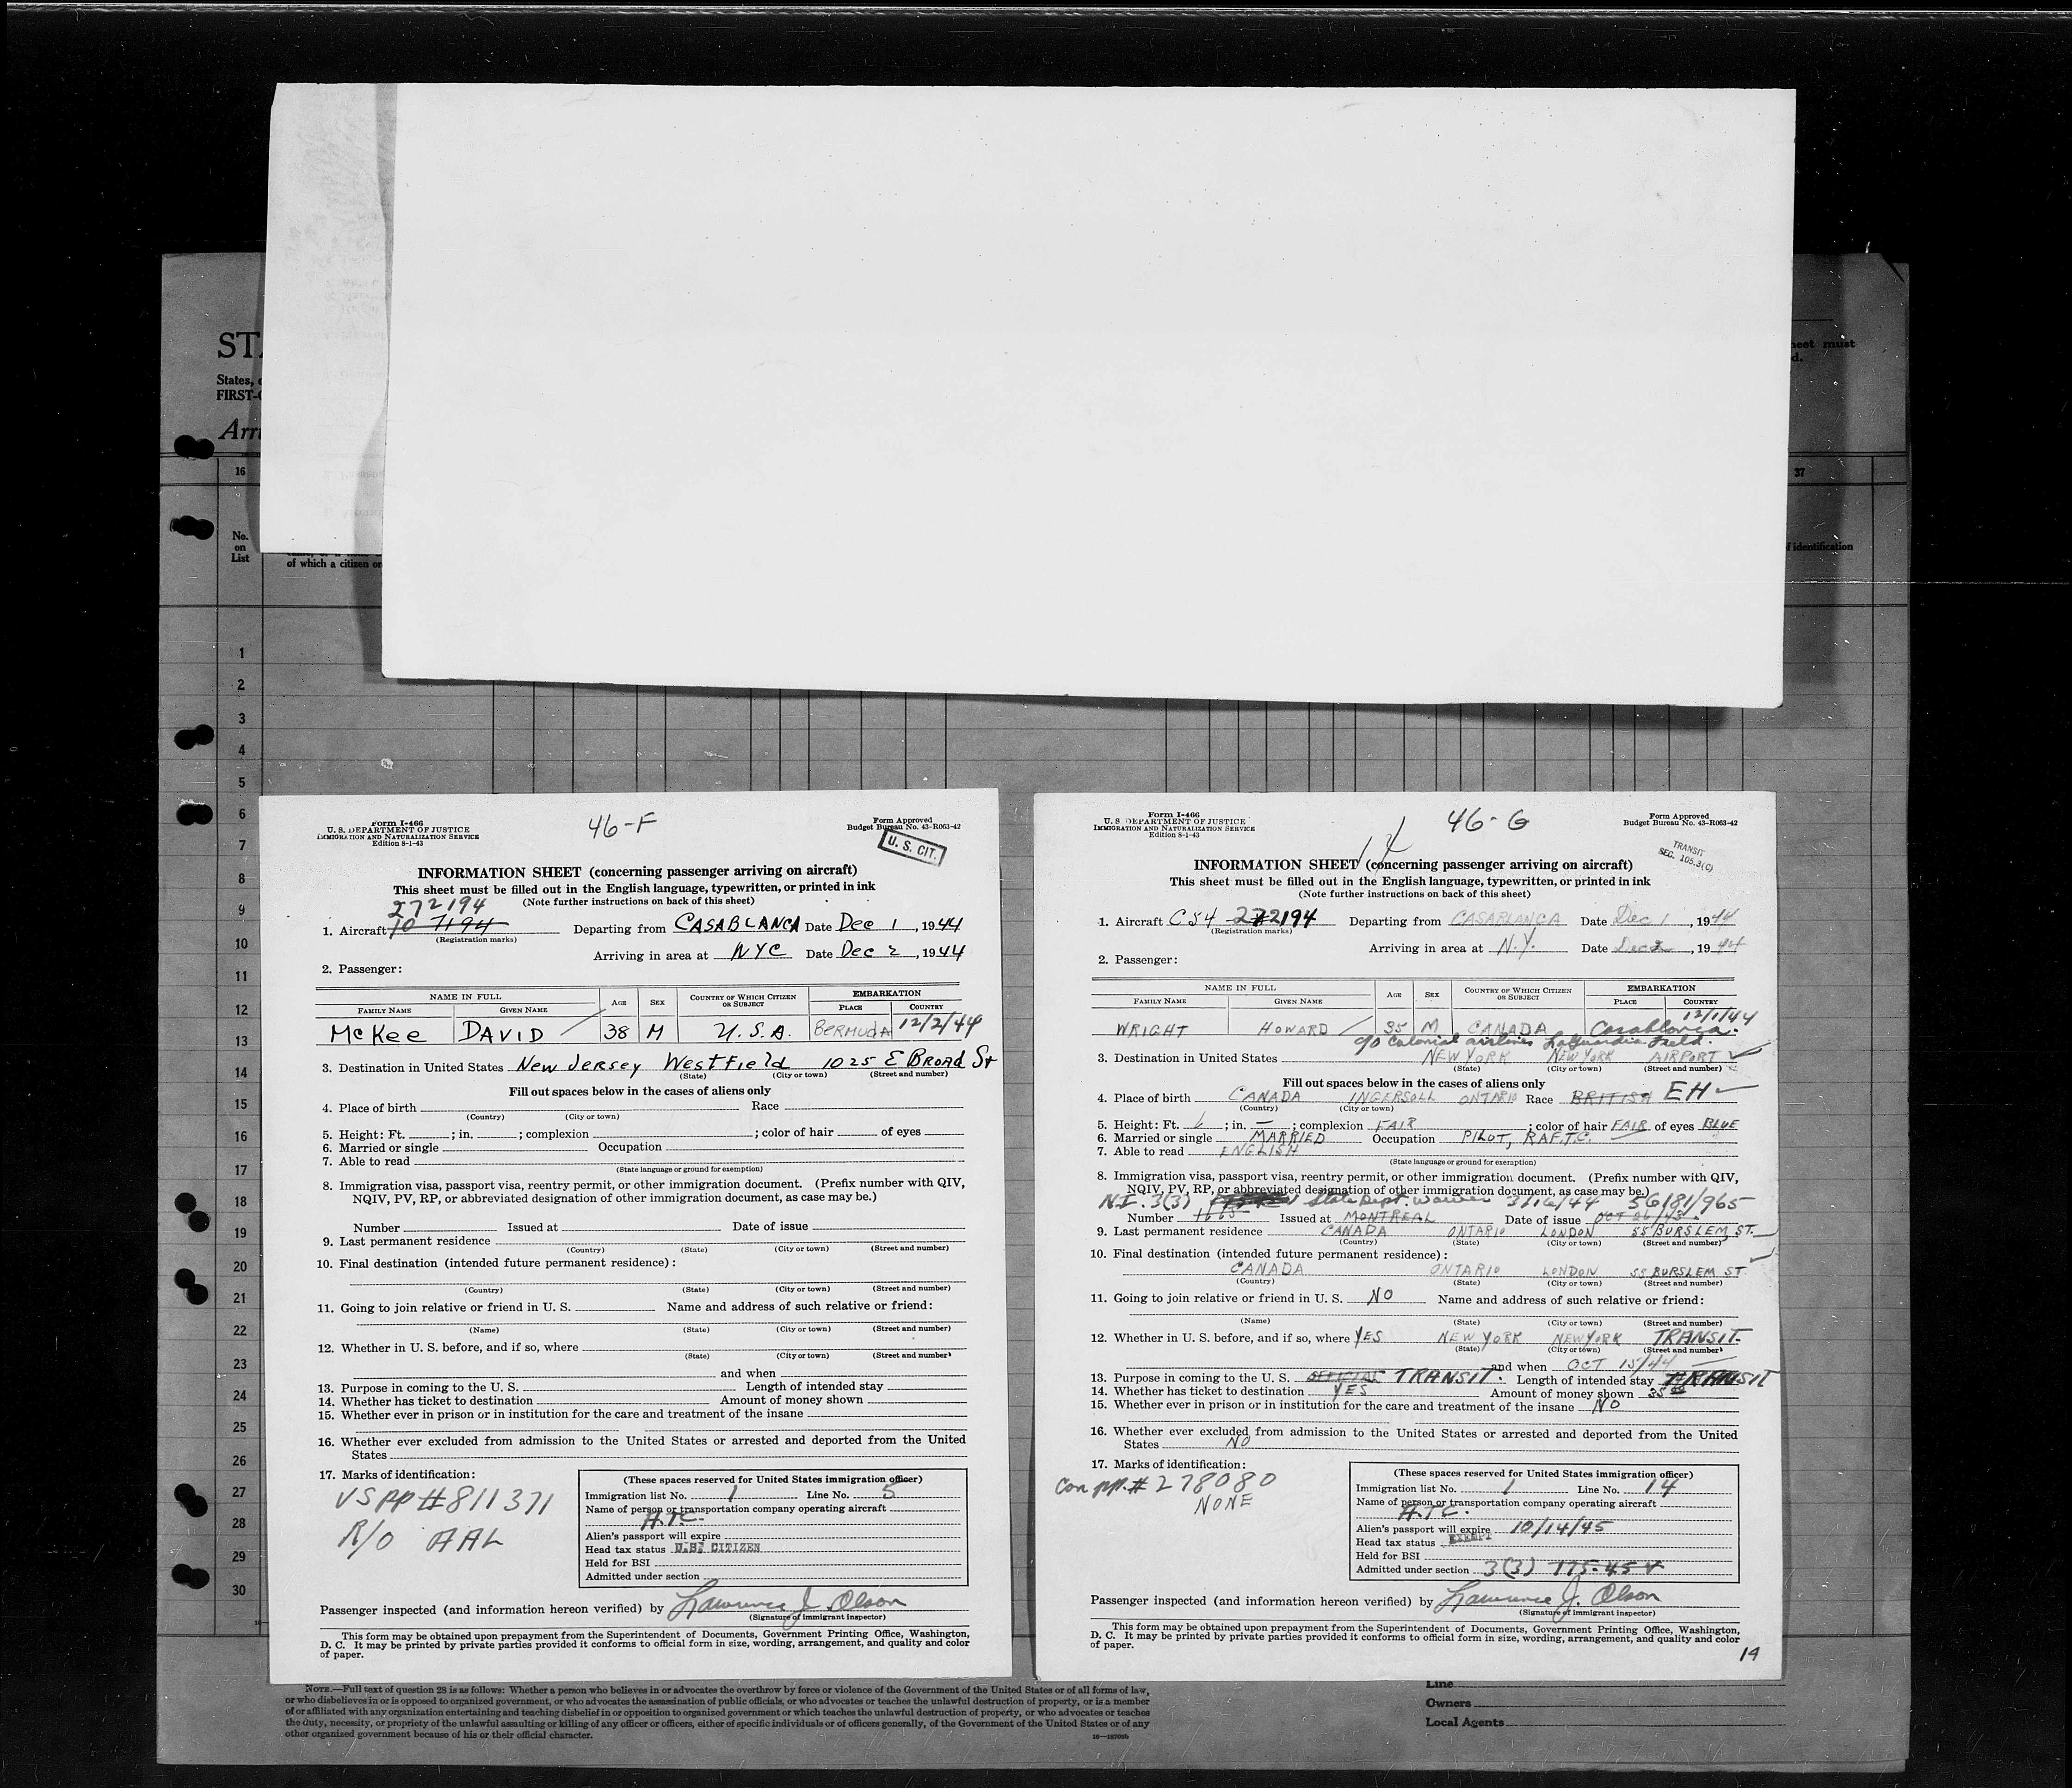 STA
States, o
FIRST-C
Arri
16
No.
on
List
of which a citizen or
eet must
d.
37
f identification
1
2
3
4
5
6
7
8
9
10
11
12
13
14
15
16
17
18
19
20
21
22
23
24
25
26
27
28
29
30
Form I-466
U. S. DEPARTMENT OF JUSTICE
IMMIGRATION AND NATURALIZATION SERVICE
Edition 8-1-43
46-F
Form Approved
Budget Bureau No. 43-R063-42
U. S. CIT.
INFORMATION SHEET (concerning passenger arriving on aircraft)
This sheet must be filled out in the English language, typewritten, or printed in ink
(Note further instructions on back of this sheet)
272194
1. Aircraft 10 7194 Departing from CASABLANCA Date Dec 1, 1944
(Registration marks)
Arriving in area at NYC Date Dec 2, 1944
2. Passenger:
NAME IN FULL AGE SEX COUNTRY OF WHICH CITIZEN OR SUBJECT EMBARKATION
FAMILY NAME GIVEN NAME PLACE COUNTRY
McKee DAVID 38 M U.S.A. BERMUDA 12/2/44
3. Destination in United States New Jersey Westfield 1025 E Broad St
(State) (City or town) (Street and number)
Fill out spaces below in the cases of aliens only
4. Place of birth Race
(Country) (City or town)
5. Height: Ft. ; in. ; complexion ; color of hair of eyes
6. Married or single Occupation
7. Able to read
(State language or ground for exemption)
8. Immigration visa, passport visa, reentry permit, or other immigration document. (Prefix number with QIV,
NQIV, PV, RP, or abbreviated designation of other immigration document, as case may be.)
Number Issued at Date of issue
9. Last permanent residence
(Country) (State) (City or town) (Street and number)
10. Final destination (intended future permanent residence):
(Country) (State) (City or town) (Street and number)
11. Going to join relative or friend in U. S. Name and address of such relative or friend:
(Name) (State) (City or town) (Street and number)
12. Whether in U. S. before, and if so, where
(State) (City or town) (Street and number)
and when
13. Purpose in coming to the U. S. Length of intended stay
14. Whether has ticket to destination Amount of money shown
15. Whether ever in prison or in institution for the care and treatment of the insane
16. Whether ever excluded from admission to the United States or arrested and deported from the United
States
17. Marks of identification:
VS pp # 811371
R/O AAL
(These spaces reserved for United States immigration officer)
Immigration list No. 1 Line No. 5
Name of person or transportation company operating aircraft
A.T.C.
Alien's passport will expire
Head tax status U.S. CITIZEN
Held for BSI
Admitted under section
Passenger inspected (and information hereon verified) by Lawrence J. Olson
(Signature of immigrant inspector)
This form may be obtained upon prepayment from the Superintendent of Documents, Government Printing Office, Washington,
D. C. It may be printed by private parties provided it conforms to official form in size, wording, arrangement, and quality and color
of paper.
Form I-466
U. S. DEPARTMENT OF JUSTICE
IMMIGRATION AND NATURALIZATION SERVICE
Edition 8-1-43
46-G
Form Approved
Budget Bureau No. 43-R063-42
TRANSIT
SEC. 105.3(C)
INFORMATION SHEET (concerning passenger arriving on aircraft)
This sheet must be filled out in the English language, typewritten, or printed in ink
(Note further instructions on back of this sheet)
1. Aircraft C54 272194 Departing from CASABLANCA Date Dec 1, 1944
(Registration marks)
Arriving in area at N.Y. Date Dec 2, 1944
2. Passenger:
NAME IN FULL AGE SEX COUNTRY OF WHICH CITIZEN OR SUBJECT EMBARKATION
FAMILY NAME GIVEN NAME PLACE COUNTRY
12/1/44
WRIGHT HOWARD 35 M CANADA Casablanca.
c/o Colonial airlines LaGuardia Field.
3. Destination in United States NEW YORK NEW YORK AIRPORT
(State) (City or town) (Street and number)
Fill out spaces below in the cases of aliens only
4. Place of birth CANADA INGERSOLL ONTARIO Race BRITISH EH
(Country) (City or town)
5. Height: Ft. 6 ; in. — ; complexion FAIR ; color of hair FAIR of eyes BLUE
6. Married or single MARRIED Occupation PILOT, R.A.F.T.C.
7. Able to read ENGLISH
(State language or ground for exemption)
8. Immigration visa, passport visa, reentry permit, or other immigration document. (Prefix number with QIV,
NQIV, PV, RP, or abbreviated designation of other immigration document, as case may be.)
N.I. 3(3) State Dept. Waiver 3/16/44 56181/965
Number 1665 Issued at MONTREAL Date of issue OCT 26/43
9. Last permanent residence CANADA ONTARIO LONDON 55 BURSLEM ST.
(Country) (State) (City or town) (Street and number)
10. Final destination (intended future permanent residence):
CANADA ONTARIO LONDON 55 BURSLEM ST
(Country) (State) (City or town) (Street and number)
11. Going to join relative or friend in U. S. NO Name and address of such relative or friend:
(Name) (State) (City or town) (Street and number)
12. Whether in U. S. before, and if so, where YES NEW YORK NEW YORK TRANSIT.
(State) (City or town) (Street and number)
and when OCT 15/44
13. Purpose in coming to the U. S. OFFICIAL TRANSIT. Length of intended stay TRANSIT
14. Whether has ticket to destination YES Amount of money shown 35 00
15. Whether ever in prison or in institution for the care and treatment of the insane NO
16. Whether ever excluded from admission to the United States or arrested and deported from the United
States NO
17. Marks of identification:
Can pp. # 278080
NONE
(These spaces reserved for United States immigration officer)
Immigration list No. 1 Line No. 14
Name of person or transportation company operating aircraft
A.T.C.
Alien's passport will expire 10/14/45
Head tax status EXEMPT
Held for BSI
Admitted under section 3(3) 175.45
Passenger inspected (and information hereon verified) by Lawrence J. Olson
(Signature of immigrant inspector)
This form may be obtained upon prepayment from the Superintendent of Documents, Government Printing Office, Washington,
D. C. It may be printed by private parties provided it conforms to official form in size, wording, arrangement, and quality and color
of paper.
14
NOTE.—Full text of question 28 is as follows: Whether a person who believes in or advocates the overthrow by force or violence of the Government of the United States or of all forms of law,
or who disbelieves in or is opposed to organized government, or who advocates the assassination of public officials, or who advocates or teaches the unlawful destruction of property, or is a member
of or affiliated with any organization entertaining and teaching disbelief in or opposition to organized government or which teaches the unlawful destruction of property, or who advocates or teaches
the duty, necessity, or propriety of the unlawful assaulting or killing of any officer or officers, either of specific individuals or of officers generally, of the Government of the United States or of any
other organized government because of his or their official character.
Line
Owners
Local Agents